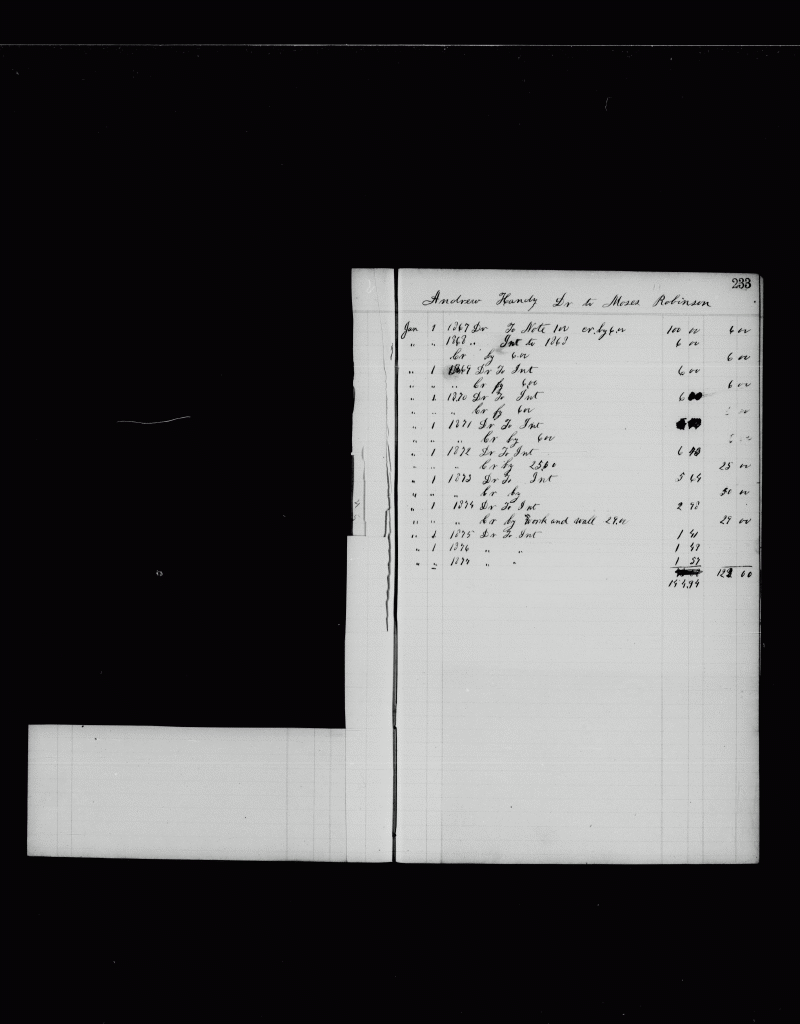 233
Andrew Handy Dr to Moses Robinson
Jan 1 1867 Dr To Note 100 cr. by 6.00 100 00 6 00
" " 1868 " Int to 1868 6 00
Cr by 600 6 00
" 1 1869 Dr To Int 6 00
" " " Cr by 600 6 00
" 1 1870 Dr To Int 6 00
" " " Cr by 600 00
" 1 1871 Dr To Int
" " " Cr by 600
" 1 1872 Dr To Int 6
" " " Cr by 25.00 25 00
" 1 1873 Dr To Int 5 69
" " " Cr by 30 00
" 1 1874 Dr To Int 2 98
" " " Cr by Work and wall 29.00 29 00
" 1 1875 Dr To Int 1 41
" 1 1876 " " 1 49
" " 1877 " " 1 57
122 00